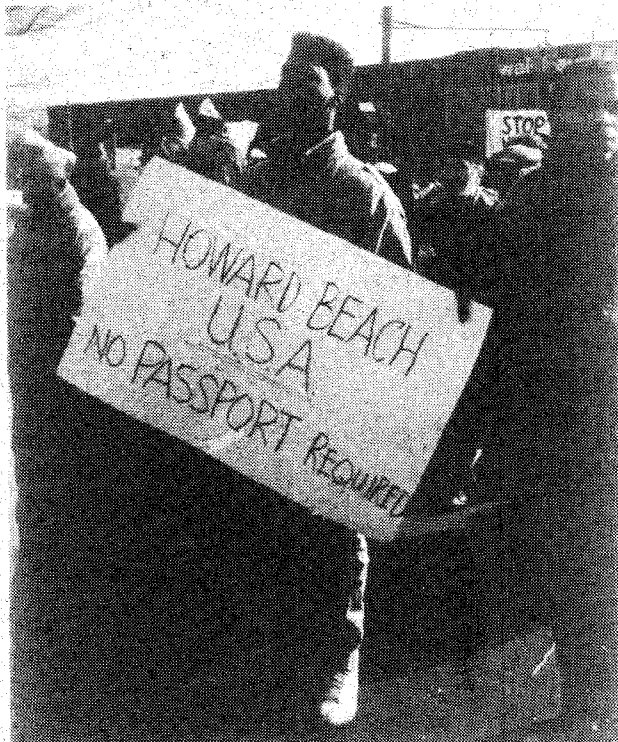 STOP
HOWARD BEACH
U.S.A.
NO PASSPORT REQUIRED